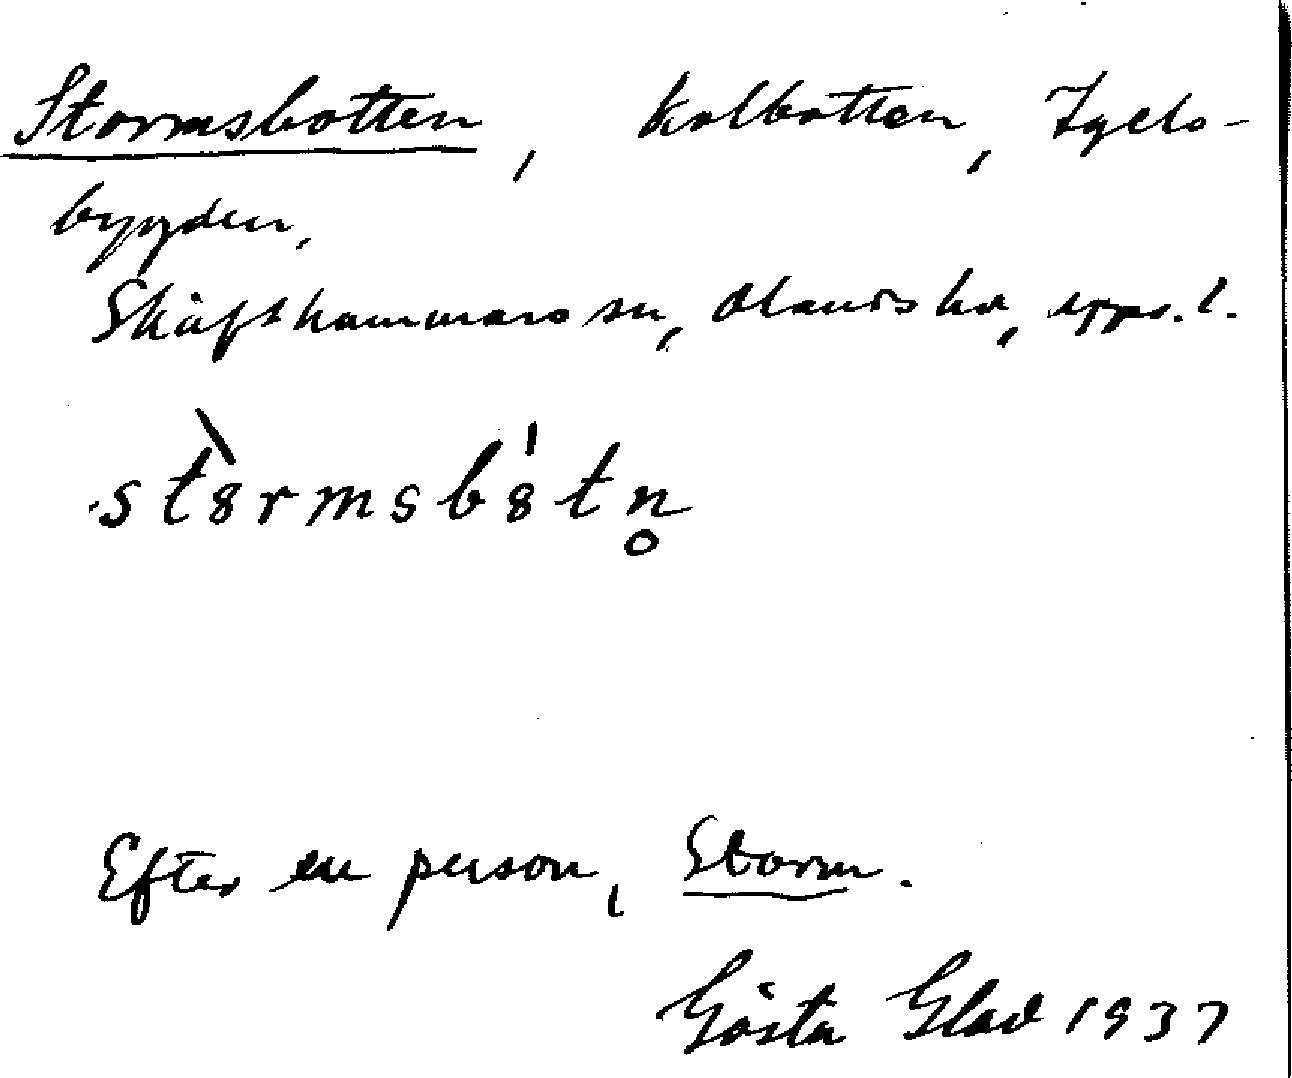 Stormsbotten, kolbotten, Igels-
bygden,
Skäfthammars sn, Olands hd, Upps. l.
st8̀rmsb8́tn̥
Efter en person, Storm.
Gösta Glad 1937